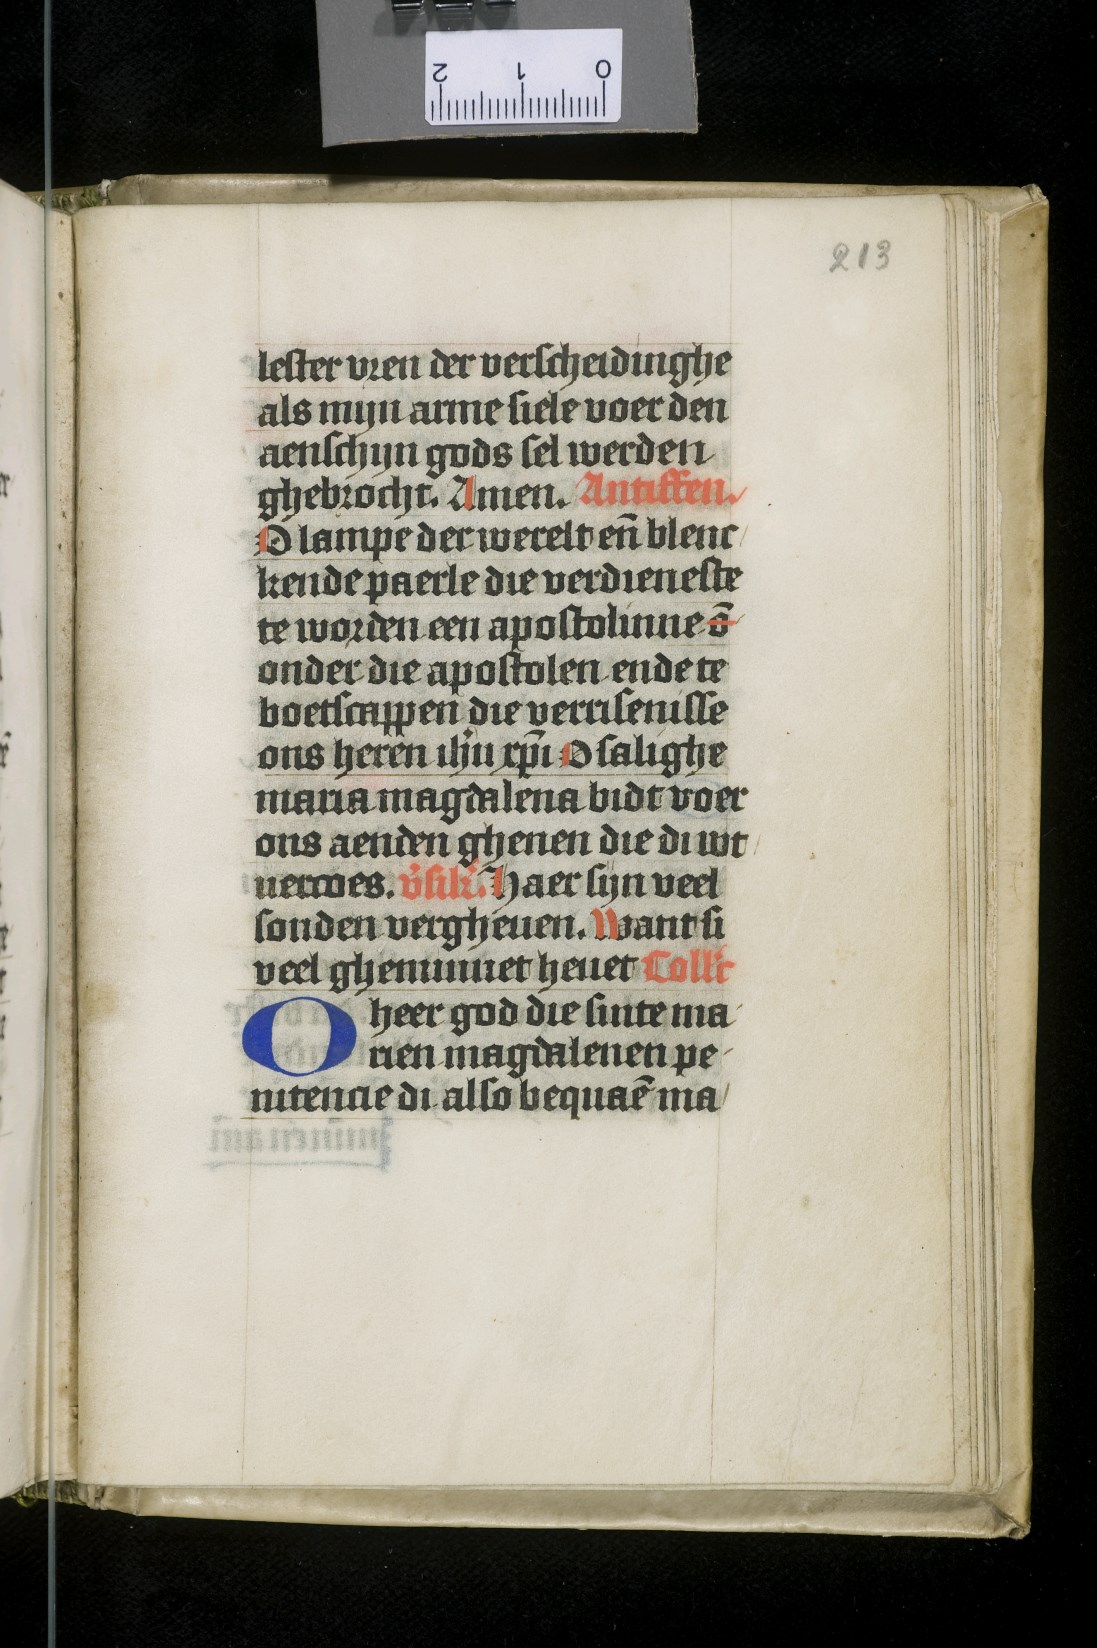 2 1 0
213
lester vren der verscheidinghe
als mijn arme siele voer den
aenschijn gods sel werden
ghebrocht. Amen. Antiffen.
O lampe der werelt en̄ blenc
kende paerle die verdieneste
te worden een apostolinne
onder die apostolen ende te
boetscappen die verrisenisse
ons heren ih'u xp̄i O salighe
maria magdalena bidt voer
ons aenden ghenen die di wt
uercoes. v'sik'. Haer sijn veel
sonden vergheuen. Want si
veel gheminnet heuet Coll'c
O heer god die sinte ma
rien magdalenen pe
nitencie di also bequaē ma